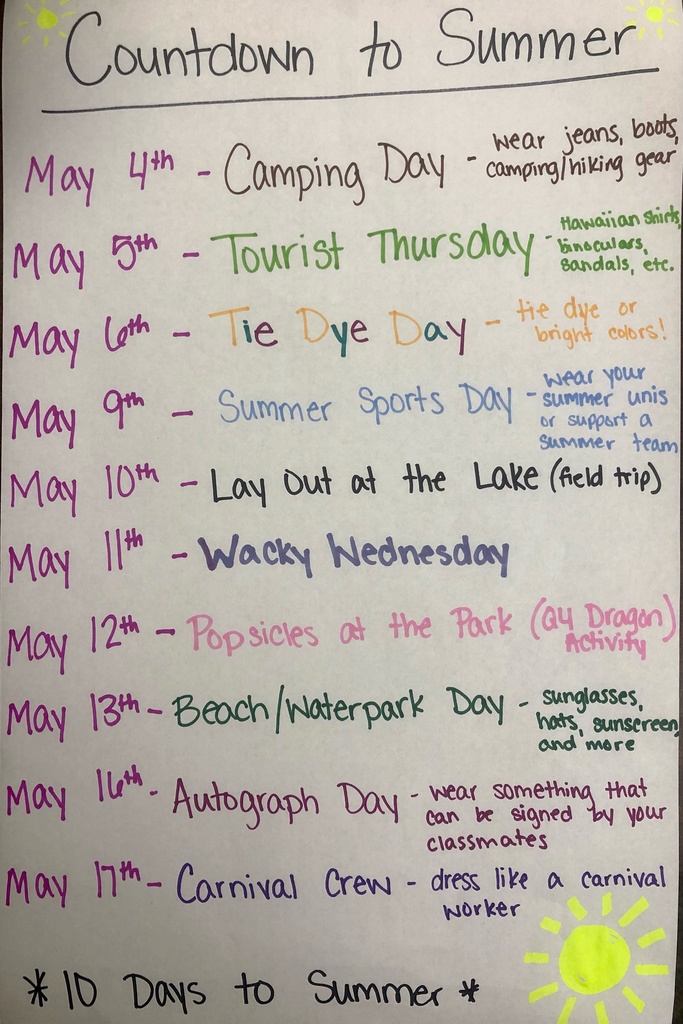 Countdown to Summer
May 4th - Camping Day - wear jeans, boots,
camping/hiking gear
May 5th - Tourist Thursday - Hawaiian shirts,
binoculars,
sandals, etc.
May 6th - Tie Dye Day - tie dye or
bright colors!
May 9th - Summer Sports Day - wear your
summer unis
or support a
summer team
May 10th - Lay Out at the Lake (field trip)
May 11th - Wacky Wednesday
May 12th - Popsicles at the Park (Q4 Dragon)
Activity
May 13th - Beach/Waterpark Day - sunglasses,
hats, sunscreen,
and more
May 16th - Autograph Day - wear something that
can be signed by your
classmates
May 17th - Carnival Crew - dress like a carnival
worker
* 10 Days to Summer *